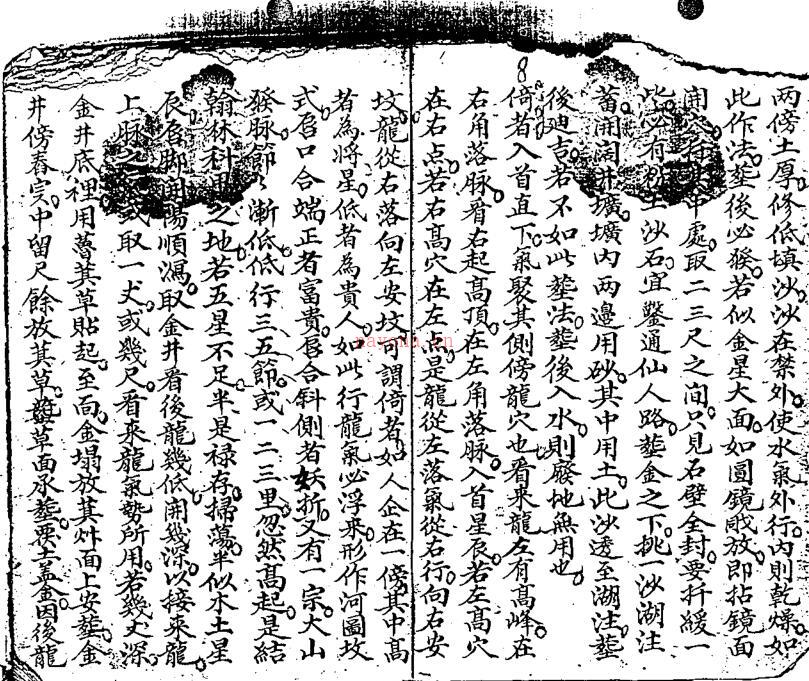 兩傍土厚修低填沙沙在禁外使水氣外行内則乾燥如
此作法塟後必發若似金星大面如圓鏡戝放即拈鏡面
開 行其中處取二三尺之间只見石壁全封要扦緩一
些必有 土沙石宜鑿通仙人路塟金之下挑一沙湖注
蓄開濶井壙壙内两邉用砂其中用土此沙透至湖注塟
後廸吉若不如此塟法塟後入水則廢地無用也
8
倚者入首直下氣聚其側傍龍穴也看来龍左有髙峰在
右角落脉看右起髙頂在左角落脉入首星辰若左髙穴
在右点若右髙穴在左点是龍從左落氣從右行向右安
坟龍從右落向左安坟可謂倚者如人企在一傍其中髙
者為將星低者為貴人如此行龍氣必浮来形作河圖坟
式唇口合端正者富貴唇合斜側者妖折又有一宗大山
發脉節々漸低低行三五節或一二三里忽然髙起是結
翰林科甲之地若五星不足半是禄存掃蕩半似木土星
辰唇脚 陽順瀉取金井看後龍幾低開幾深以接来龍
上脉之 或取一丈或幾尺看来龍氣勢所用若幾丈深
金井底裡用蕚萁草貼起至面金塌放萁 面上安塟金
井傍舂実中留尺餘放萁草 草面承塟要土盖金因後龍
nayona.cn